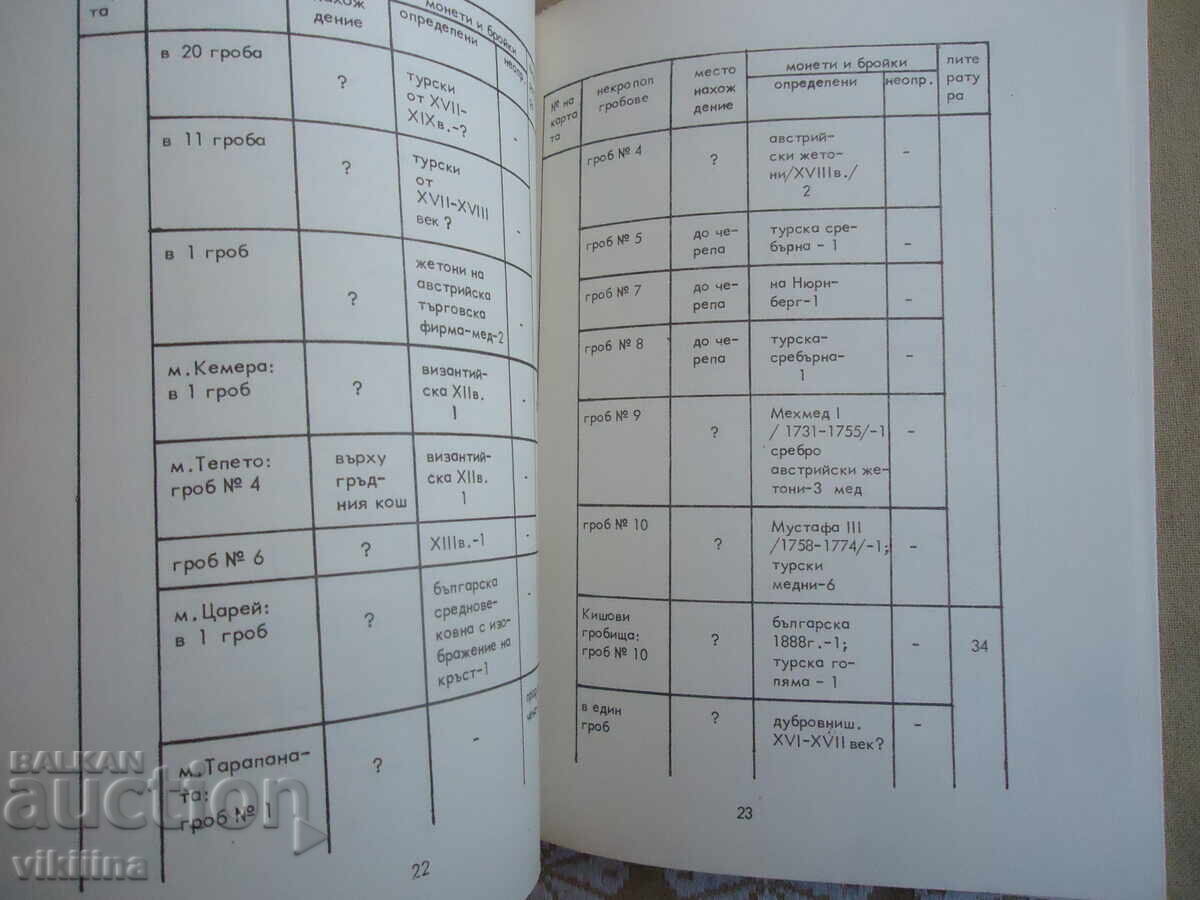 та
нахож
дение
монети и бройки
определени
неопр.
в 20 гроба
?
турски
от XVII-
XIXв.-?
-
в 11 гроба
?
турски
от
XVII-XVIII
век ?
-
в 1 гроб
?
жетони на
австрийска
търговска
фирма-мед-2
-
м.Кемера:
в 1 гроб
?
византий-
ска XIIв.
1
-
м.Тепето:
гроб № 4
върху
гръд-
ния кош
византий-
ска XIIв.
1
-
гроб № 6
?
XIIIв.-1
-
м.Царей:
в 1 гроб
?
българска
среднове-
ковна с изо-
бражение на
кръст-1
-
м.Тарапана-
та:
гроб № 1
?
-
22
№ на
карта
та
некропол
гробове
место
нахож
дение
монети и бройки
определени
неопр.
лите
рату
ра
гроб № 4
?
австрий-
ски жето-
ни/XVIIIв./
2
-
гроб № 5
до че-
репа
турска сре-
бърна - 1
-
гроб № 7
до че-
репа
на Нюрн-
берг-1
-
гроб № 8
до че-
репа
турска-
сребърна-
1
-
гроб № 9
?
Мехмед I
/ 1731-1755/-1
сребро
австрийски же-
тони-3 мед
-
гроб № 10
?
Мустафа III
/1758-1774/-1;
турски
медни-6
-
Кишови
гробища:
гроб № 10
?
българска
1888г.-1;
турска го-
ляма - 1
-
34
в един
гроб
?
дубровниш.
XVI-XVII век?
-
23
BALKAN
auction
vikilina